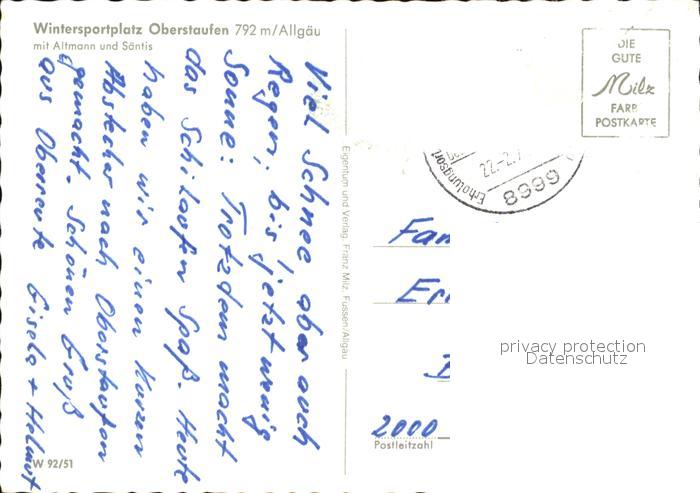 Wintersportplatz Oberstaufen 792 m/Allgäu
mit Altmann und Säntis
Viel Schnee aber auch
Regen; bis jetzt wenig
Sonne: Trotzdem macht
das Schilaufen Spaß. Heute
haben wir einen kurzen
Abstecher nach Oberstaufen
gemacht. Schönen Gruß
aus Oberreute Gisela + Helmut
W 92/51
Eigentum und Verlag Franz Milz, Füssen/Allgäu
DIE
GUTE
Milz
FARB
POSTKARTE
22.-2.7
8999
Erholungsort
Fam
Eri
2000
Postleitzahl
privacy protection
Datenschutz